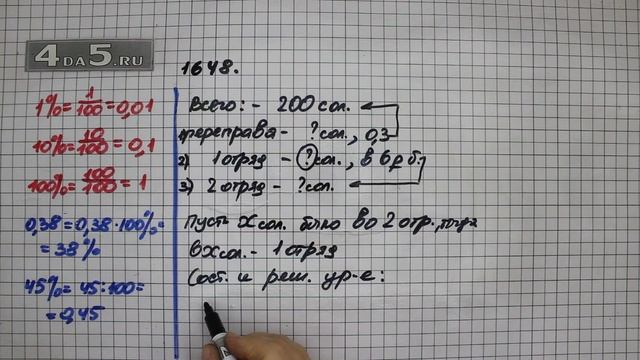 4DA5.RU
1648.
1% = 1/100 = 0,01
10% = 10/100 = 0,1
100% = 100/100 = 1
0,38 = 0,38 · 100% =
= 38%
45% = 45 : 100 =
= 0,45
Всего: - 200 сол.
1) переправа - ? сол., 0,3
2) 1 отряд - ? сол., в 6 р б.
3) 2 отряд - ? сол.
Пусть x сол. было во 2 отр., тогда
6x сол. - 1 отряд
Сост. и реш. ур-е: